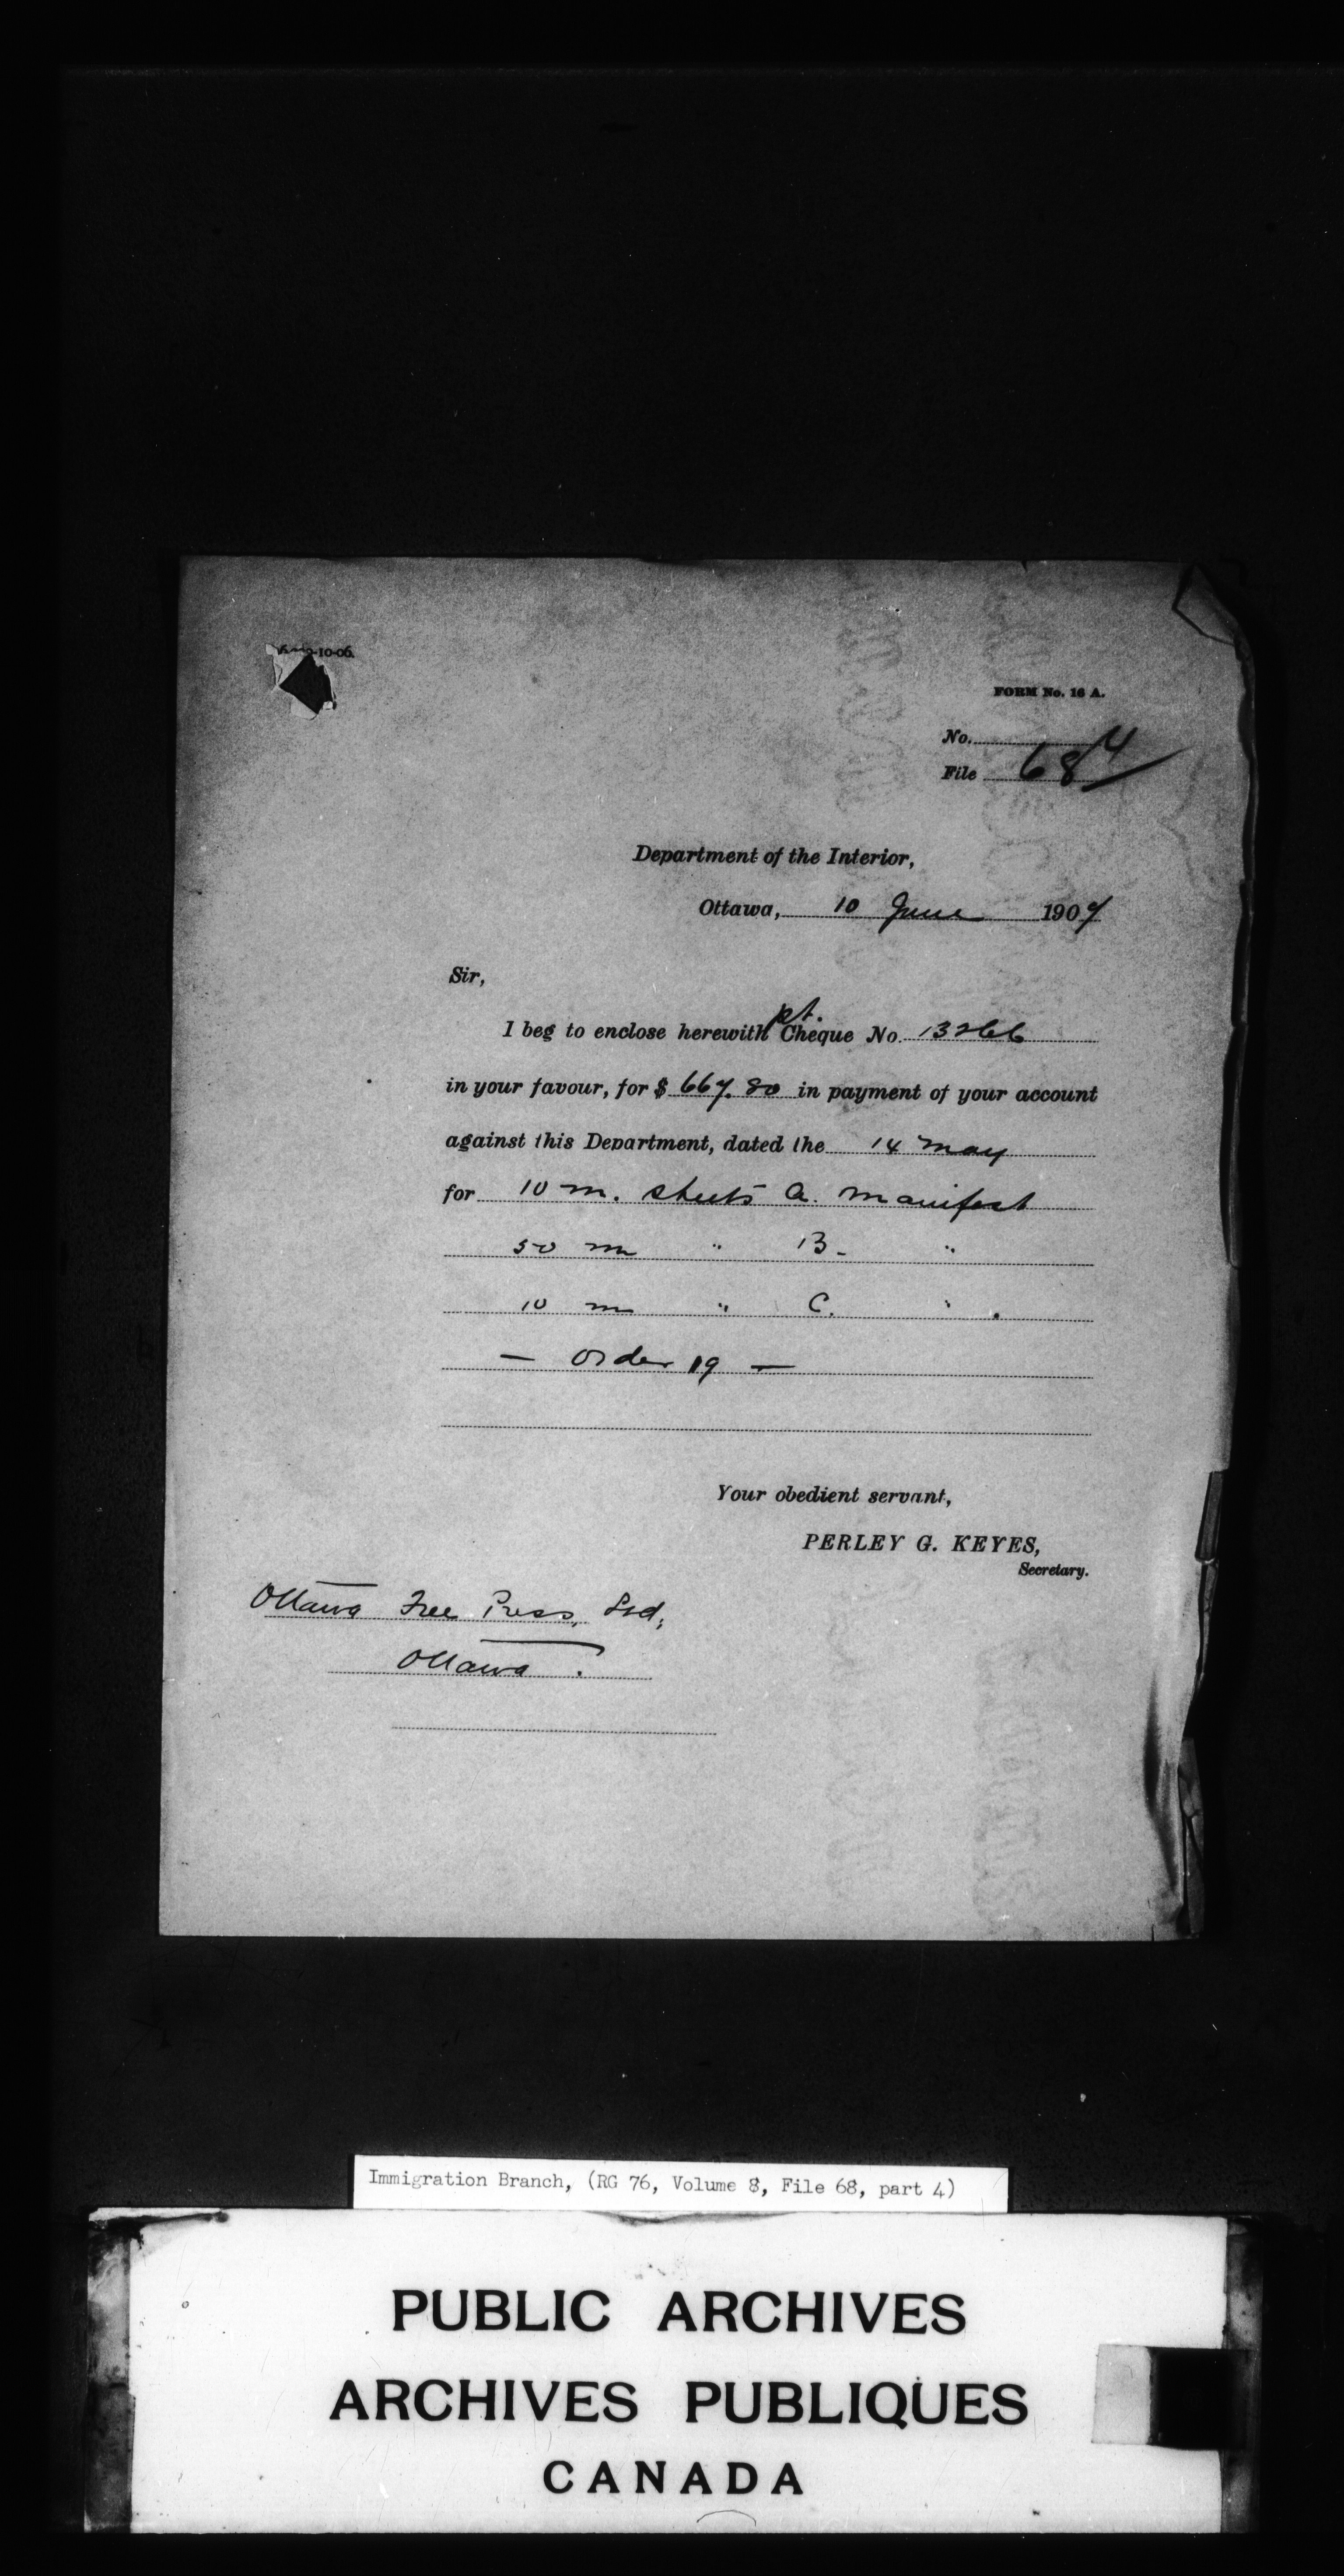 -10-06.
FORM No. 16 A.
No.
File 68/4
Department of the Interior,
Ottawa, 10 June 1907
Sir,
pt.
I beg to enclose herewith Cheque No. 13266
in your favour, for $ 667.80 in payment of your account
against this Department, dated the 14 May
for 10 m. sheets A. Manifest
50 m " B. "
10 m " C. " .
— Order 19 —
Your obedient servant,
PERLEY G. KEYES,
Secretary.
Ottawa Free Press, Ltd,
Ottawa.
Immigration Branch, (RG 76, Volume 8, File 68, part 4)
PUBLIC ARCHIVES
ARCHIVES PUBLIQUES
CANADA